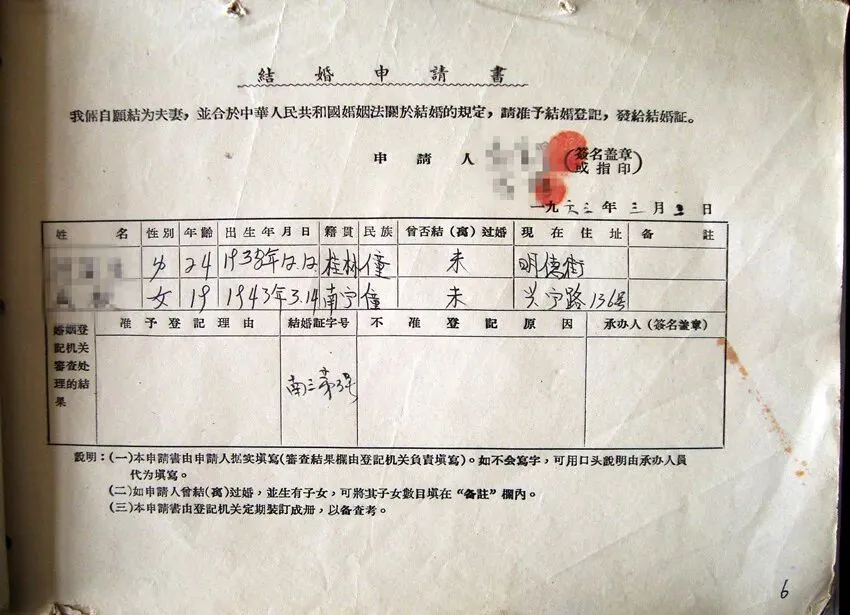 結婚申請書
我倆自願結为夫妻，並合於中華人民共和國婚姻法關於結婚的規定，請准予結婚登記，發給結婚証。
申請人 (簽名盖章
或指印)
一九六三年三月 日
姓名 性別 年齡 出生年月日 籍贯 民族 曾否结(离)过婚 現在住址 备註
24 1938年12.12 桂林 僮 未 明德街
女 19 1943年3.14 南宁 僮 未 兴宁路136号
婚姻登記机关審查处理的結果 准予登記理由 結婚証字号 不准登記原因 承办人(簽名盖章)
南三第 号
說明：(一)本申請書由申請人据实填寫(審查結果欄由登記机关負責填寫)。如不会寫字，可用口头說明由承办人員
代为填寫。
(二)如申請人曾結(离)过婚，並生有子女，可將其子女數目填在“备註”欄內。
(三)本申請書由登記机关定期裝訂成冊，以备查考。
6